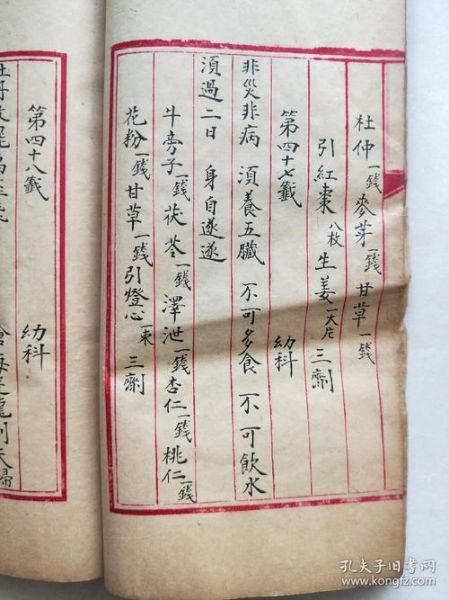 杜仲一錢 麥芽一錢 甘草一錢
引紅棗八枚 生姜一大片 三劑
第四十七籤 幼科
非災非病 須養五臟 不可多食 不可飲水
須過二日 身自遂遂
牛旁子一錢 茯苓一錢 澤泄一錢 杏仁一錢 桃仁一錢
花粉一錢 甘草一錢 引燈心一束 三劑
第四十八籤 幼科
孔夫子旧书网
www.kongfz.com